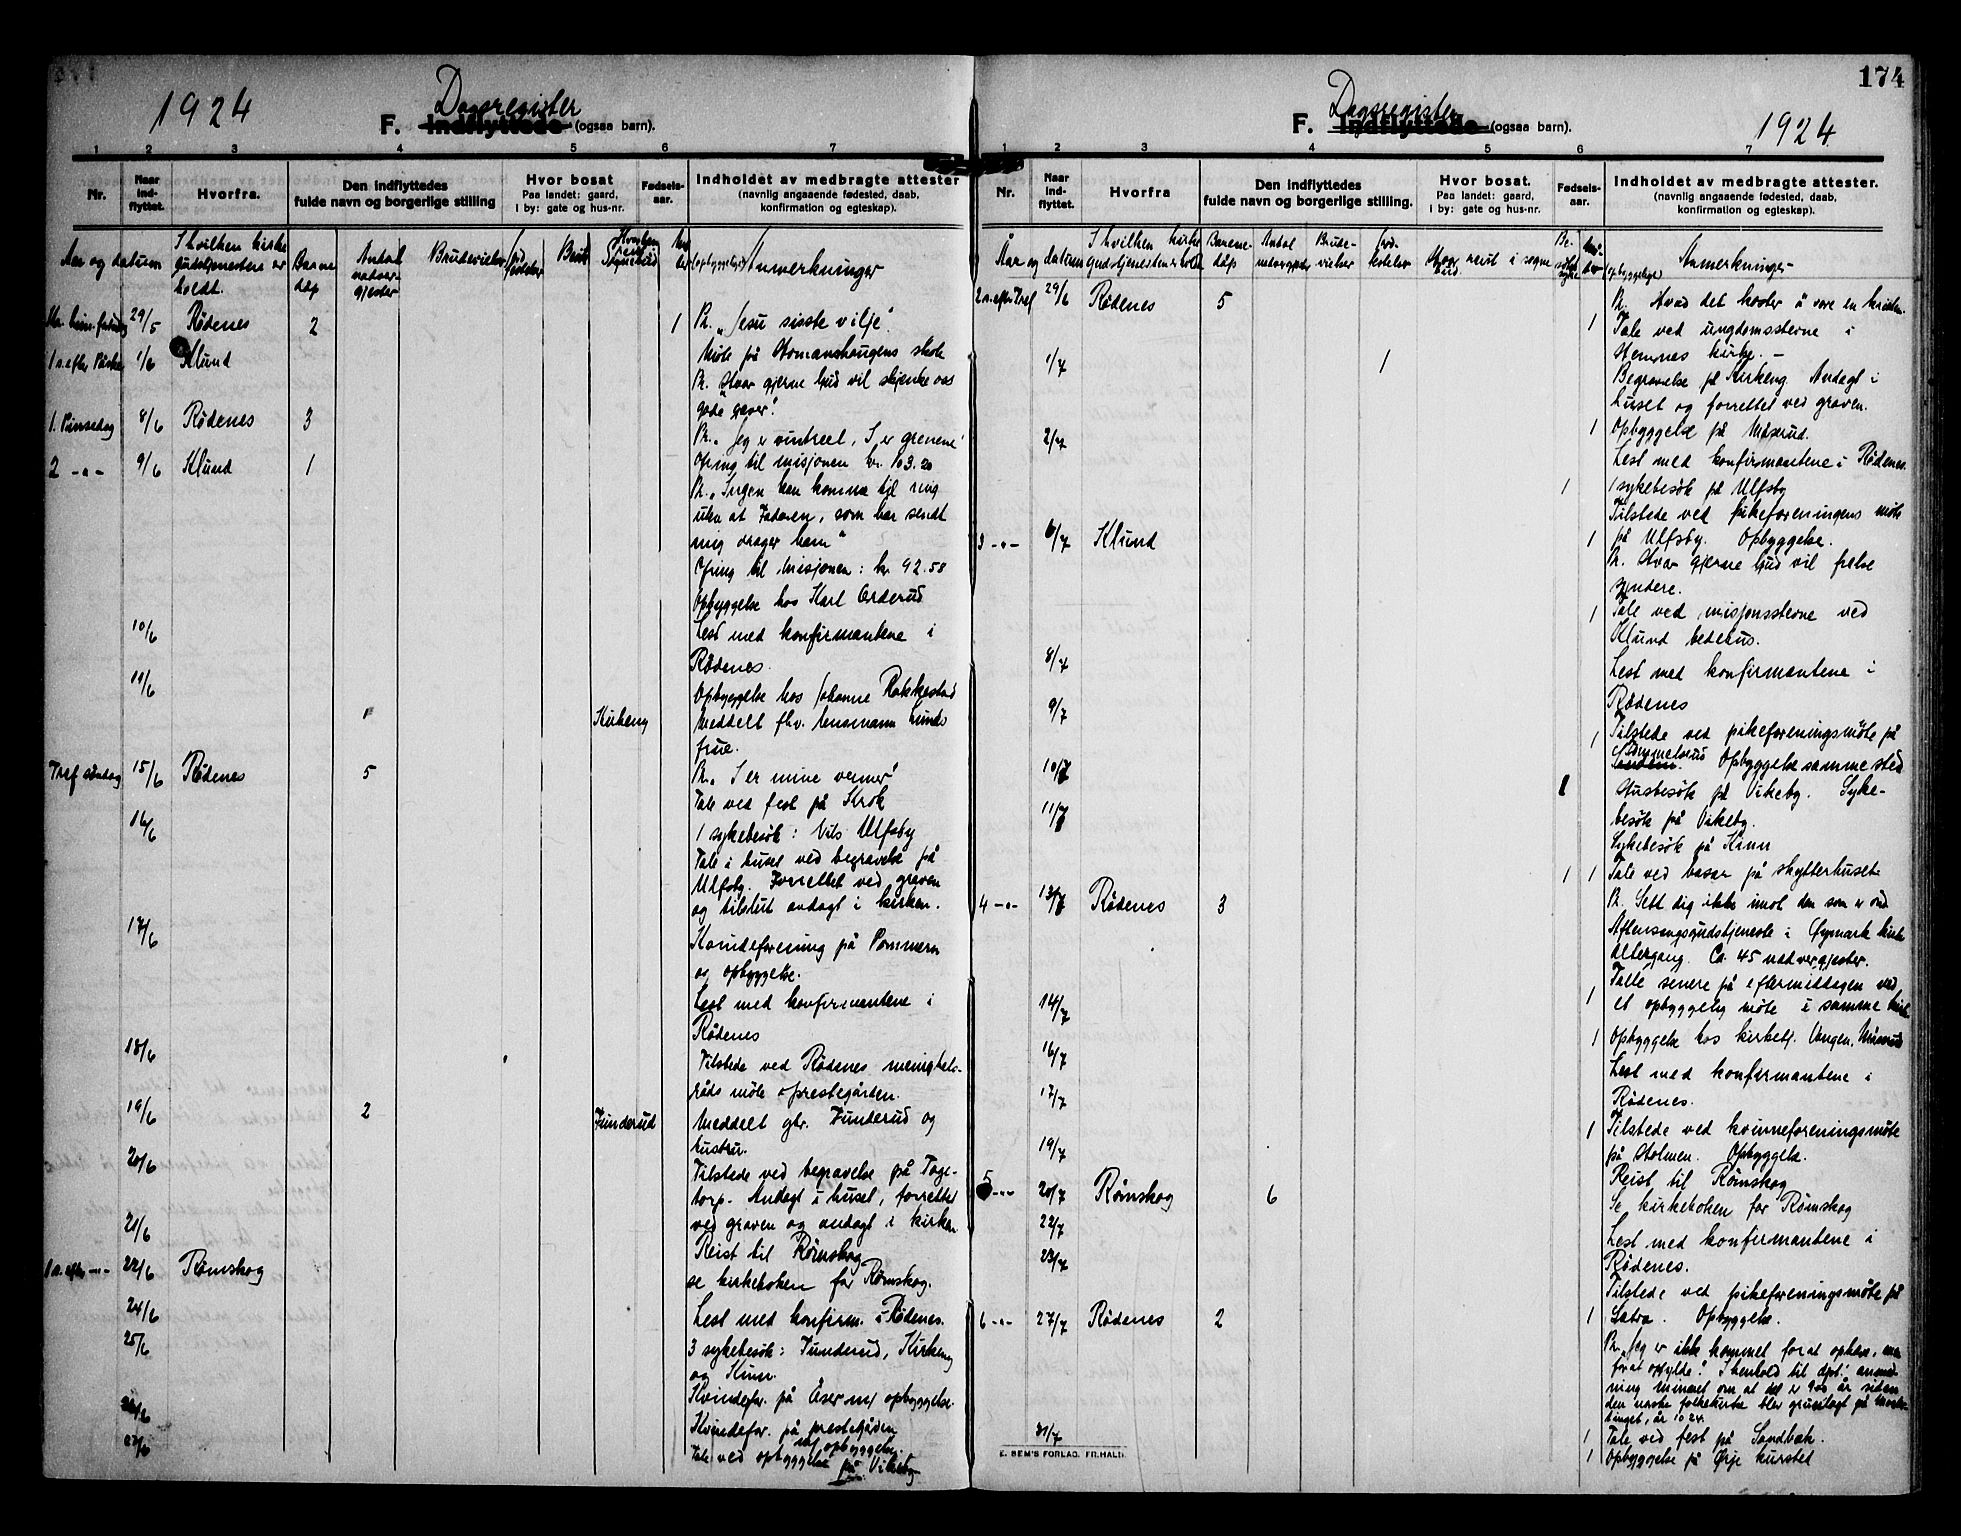 1924
Dagsregister
F. Indflyttede (ogsaa barn).
1 2 3 4 5 6 7
Nr.
Naar ind-flyttet.
Hvorfra.
Den indflyttedes fulde navn og borgerlige stilling
Hvor bosat
Paa landet: gaard,
i by: gate og hus-nr.
Fødsels-aar.
Indholdet av medbragte attester
(navnlig angaaende fødested, daab,
konfirmation og egteskap).
Aar og datum
I hvilken kirke
gudstjenesten er
holdt.
Barne
dåp
Antal
nadver-
gjester
Brudevielser
Anmerkninger
29/5 Rødenes 2 1 Pr. „Jesu sisste vilje".
Møte på skole
1 s. efter Påske 1/6 Klund
Pr. „Hvor gjerne Gud vil skjenke oss
gode gaver".
1. Pinsedag 8/6 Rødenes 3
Pr. „Jeg er vintreet, I er grenene"
Ofring til misjonen kr. 103.20
2 -"- 9/6 Klund 1
Pr. „Ingen kan komme til mig
uten at Faderen, som har sendt
mig drager ham"
Ofring til misjonen: kr 92.58
Opbyggelse hos Karl Orderud
10/6 Lest med konfirmantene i
Rødenes.
11/6 Opbyggelse hos Johanne Rakkestad
1 Kirkeng Meddelt fhv. lensmann Lunds
frue.
Tref søndag 15/6 Rødenes 5 Pr. „I er mine venner"
Tale ved fest på Krok
16/6 1 sykebesøk: Nils Ulfsby
Tale i huset ved begravelse på
Ulfsby. Forrettet ved graven
og tilslut andagt i kirken.
17/6 Kvindeforening på Pommern
og opbyggelse.
Lest med konfirmantene i
Rødenes
18/6 Tilstede ved Rødenes menighets-
råds møte i prestegården.
19/6 2 Funderud Meddelt gbr. Funderud og
hustru.
20/6 Tilstede ved begravelse på Tage-
torp. Andagt i huset, forrettet
ved graven og andagt i kirken
21/6 Reist til Rømskog
1 s. efter -"- 22/6 Rømskog se kirkeboken for Rømskog.
24/6 Lest med konfirm. i Rødenes.
25/6 3 sykebesøk: Funderud, Kirkeng
og Kinn.
Kvindefor. på Åser m/ opbyggelse.
26/6 Kvindefor. på prestegården
m/ opbyggelse.
27/6 Tale ved opbyggelse på Vikeby
174
Dagsregister
1924
F. Indflyttede (ogsaa barn).
1 2 3 4 5 6 7
Nr.
Naar ind-flyttet.
Hvorfra
Den indflyttedes fulde navn og borgerlige stilling.
Hvor bosat.
Paa landet: gaard,
i by: gate og hus-nr.
Fødsels-aar.
Indholdet av medbragte attester.
(navnlig angaaende fødested, daab,
konfirmation og egteskap).
År og datum
I hvilken kirke
gudstjenesten er holdt
Barne-
dåp
Antal
Brude-
vielser
Anmerkninger
2 s. efter Tref 29/6 Rødenes 5 Pr. Hvad det koster å vere en kristen
1 Tale ved ungdomsstevne i
kirke. -
1/7 1 Begravelse på Kirkeng. Andagt i
huset og forrettet ved graven.
2/7 1 Opbyggelse på Måserud.
Lest med konfirmantene i Rødenes.
1 1 sykebesøk på Ulfsby
Tilstede ved pikeforeningens møte
1 på Ulfsby. Opbyggelse.
3 -"- 6/7 Klund Pr. Hvor gjerne Gud vil frelse
syndere.
1 Tale ved misjonsstevne ved
Klund bedehus.
8/7 Lest med konfirmantene i
Rødenes
9/7 1 Tilstede ved pikeforeningsmøte på
Opbyggelse samme sted
10/7 1 Husbesøk på Vikeby. Syke-
besøk på Vikeby.
11/7 Sykebesøk på Kinn
1 1 Tale ved basar på skytterhuset
4 -"- 13/7 Rødenes 3 Pr. Sett dig ikke imot den som er ond
Aftensangsgudstjeneste i Øymark kirke
Altergang. Ca. 45 nadvergjester.
Talte senere på eftermiddagen ved
1 et opbyggelig møte i samme kirke
14/7 1 Opbyggelse hos kirketj. Vangen,
16/7 Lest med konfirmantene i
Rødenes.
17/7 1 Tilstede ved kvinneforeningsmøte
på Holmen. Opbyggelse.
19/7 Reist til Rømskog
5 -"- 20/7 Rømskog 6 Se kirkeboken for Rømskog
22/7 Lest med konfirmantene i
Rødenes.
23/7 Tilstede ved pikeforeningsmøte på
1 Opbyggelse.
6 -"- 27/7 Rødenes 2 Pr. „Jeg er ikke kommet for at opheve, men
for at opfylde". I henhold til dpt.'s anmod-
ning minnet om at det er 900 år siden
den norske folkekirke blev grunnlagt på Moster-
tinget, år 1024.
1 Tale ved fest på Sandbæk.
31/7 1 Opbyggelse på Ørje kursted
E. SEM'S FORLAG, FR.HALD.